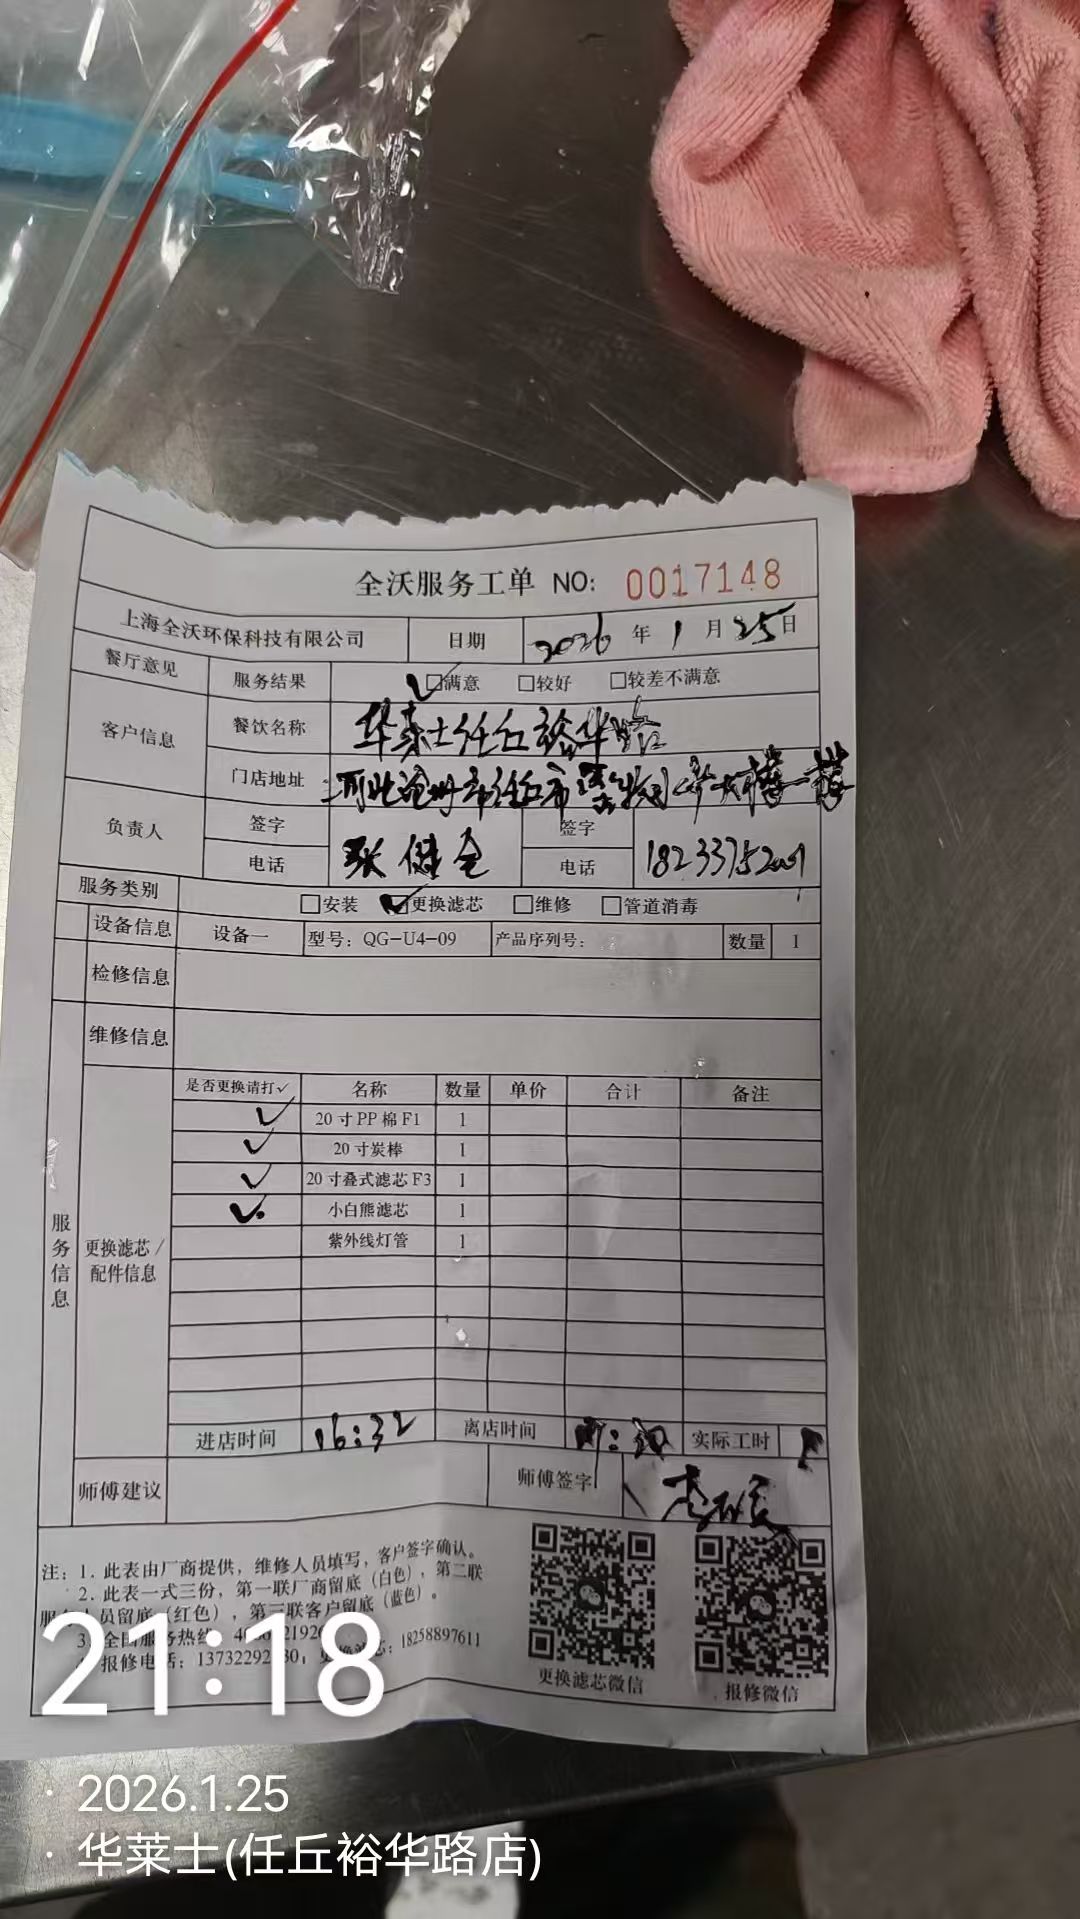 全沃服务工单 NO: 0017148
上海全沃环保科技有限公司 日期 2026 年 1 月 25 日
餐厅意见 服务结果 ☑满意 □较好 □较差不满意
客户信息 餐饮名称 华莱士任丘裕华路
门店地址 河北沧州市任丘市
负责人 签字 张健全 签字
电话 电话 182337520
服务类别 □安装 ☑更换滤芯 □维修 □管道消毒
设备信息 设备一 型号：QG-U4-09 产品序列号： 数量 1
检修信息
维修信息
服务信息
更换滤芯/配件信息
是否更换请打✓ 名称 数量 单价 合计 备注
✓ 20寸PP棉F1 1
✓ 20寸炭棒 1
✓ 20寸叠式滤芯F3 1
✓ 小白熊滤芯 1
紫外线灯管 1
进店时间 16:32 离店时间 实际工时
师傅建议 师傅签字
注：1. 此表由厂商提供，维修人员填写，客户签字确认。
2. 此表一式三份，第一联厂商留底（白色），第二联
服 人员留底（红色），第三联客户留底（蓝色）。
全国服务热线
报修电话：13732292 18258897611
更换滤芯微信 报修微信
21:18
· 2026.1.25
· 华莱士(任丘裕华路店)